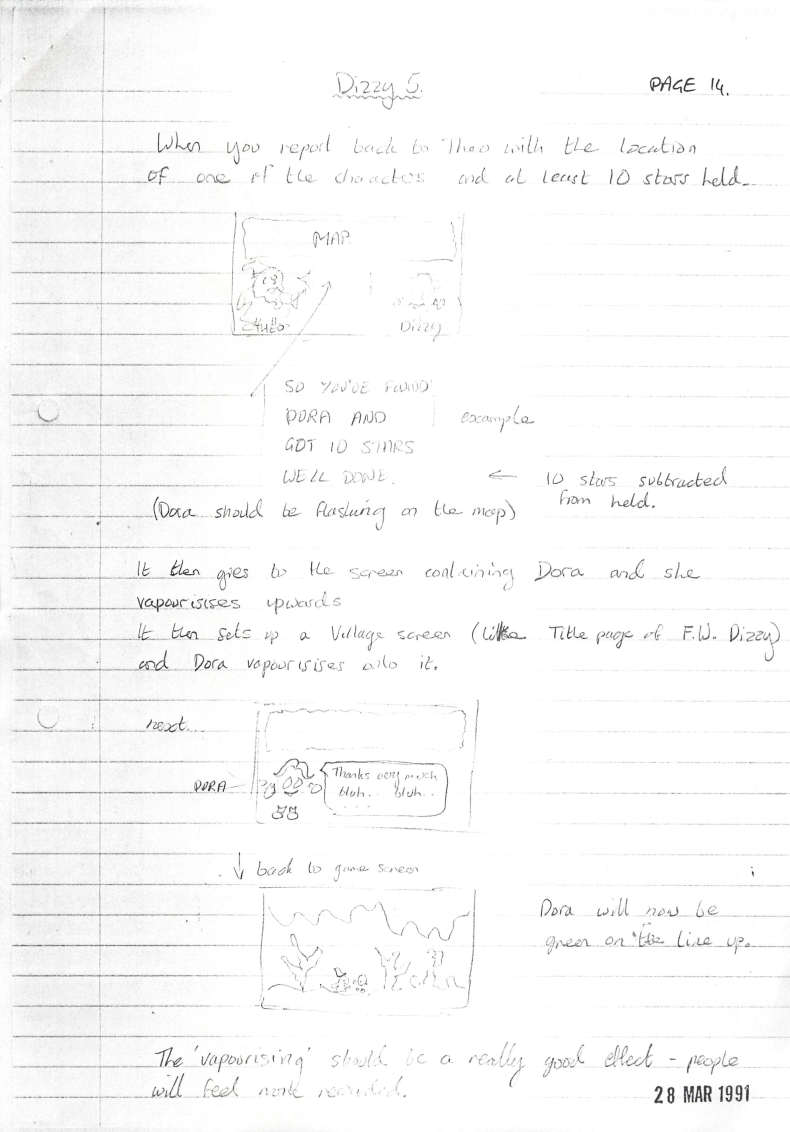 Dizzy 5.
PAGE 14.
When you report back to Theo with the location
of one of the characters and at least 10 stars held.
MAP
Theo
Dizzy
SO YOU'VE FOUND
DORA AND
GOT 10 STARS
WELL DONE.
example
← 10 stars subtracted
from held.
(Dora should be flashing on the map)
It then goes to the screen containing Dora and she
vapourisises upwards
It then sets up a Village screen (like Title page of F.W. Dizzy)
and Dora vapourisises onto it.
next...
DORA
Thanks very much
bluh.. bluh..
↓ back to game screen
Dora will now be
green on the line up.
The 'vapourising' should be a really good effect - people
will feel more rewarded.
28 MAR 1991